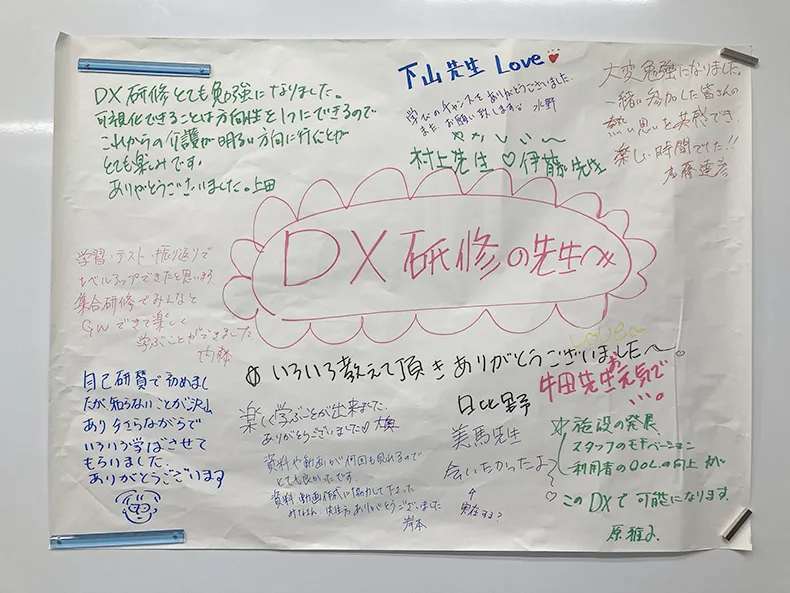 DX研修とても勉強になりました。
可視化できることは方向性を1つにできるので
これからの介護が明るい方向に行くことが
とても楽しみです。
ありがとうございました。上田
下山先生 Love
学びのチャンスをありがとうございました。
また、お願い致しまする 水野
村上先生♡伊藤先生
大変勉強になりました。
一緒に参加した皆さんの
熱い思いを共感でき、
楽しい時間でした!!
DX研修の先生へ
学習・テスト・振り返りで
レベルアップできたと思います。
集合研修でみんなと
GWできて楽しく
学ぶことができました。
内藤
Love〜
いろいろ教えて頂きありがとうございました〜。
日比野
牛田先生お元気で
…。
自己研鑽で初めまし
たが、知らないことが沢山
あり今さらながらで
いろいろ学ばさせて
もらいました。
ありがとうございます
楽しく学ぶことが出来ました。
ありがとうございました♡
資料や動画が何回も見れるので
とても良かったです。
資料、動画作成に協力して下さった
みなさん、先生方ありがとうございました
岸本
美馬先生
会いたかったよ〜
♡
↑
実在する?
☆施設の発展
スタッフのモチベーション
利用者のQOLの向上が
このDXで可能になります。